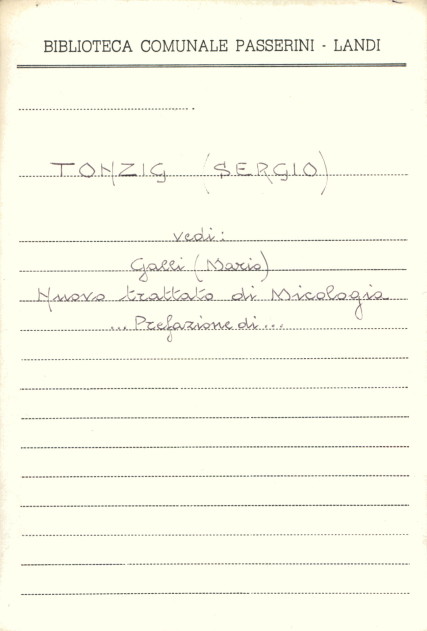 BIBLIOTECA COMUNALE PASSERINI - LANDI
TONZIG (SERGIO)
vedi:
Galli (Mario)
Nuovo trattato di Micologia
... Prefazione di ...